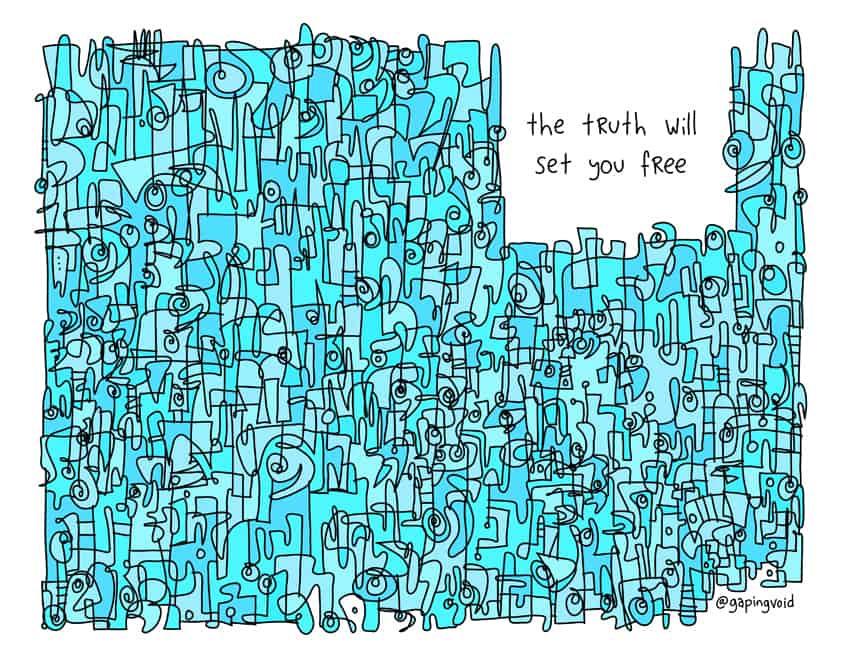 the tRuth will
set you fRee
@gapingvoid